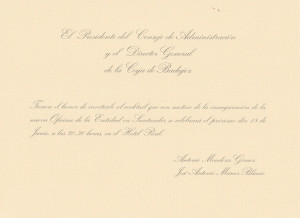 El Presidente del Consejo de Administración
y el Director General
de la Caja de Badajoz
Tienen el honor de invitarle al cocktail que con motivo de la inauguración de la
nueva Oficina de la Entidad en Santander, se celebrará el próximo día 18 de
Junio, a las 20,30 horas, en el Hotel Real.
Antonio Méndez
José Antonio Blanco